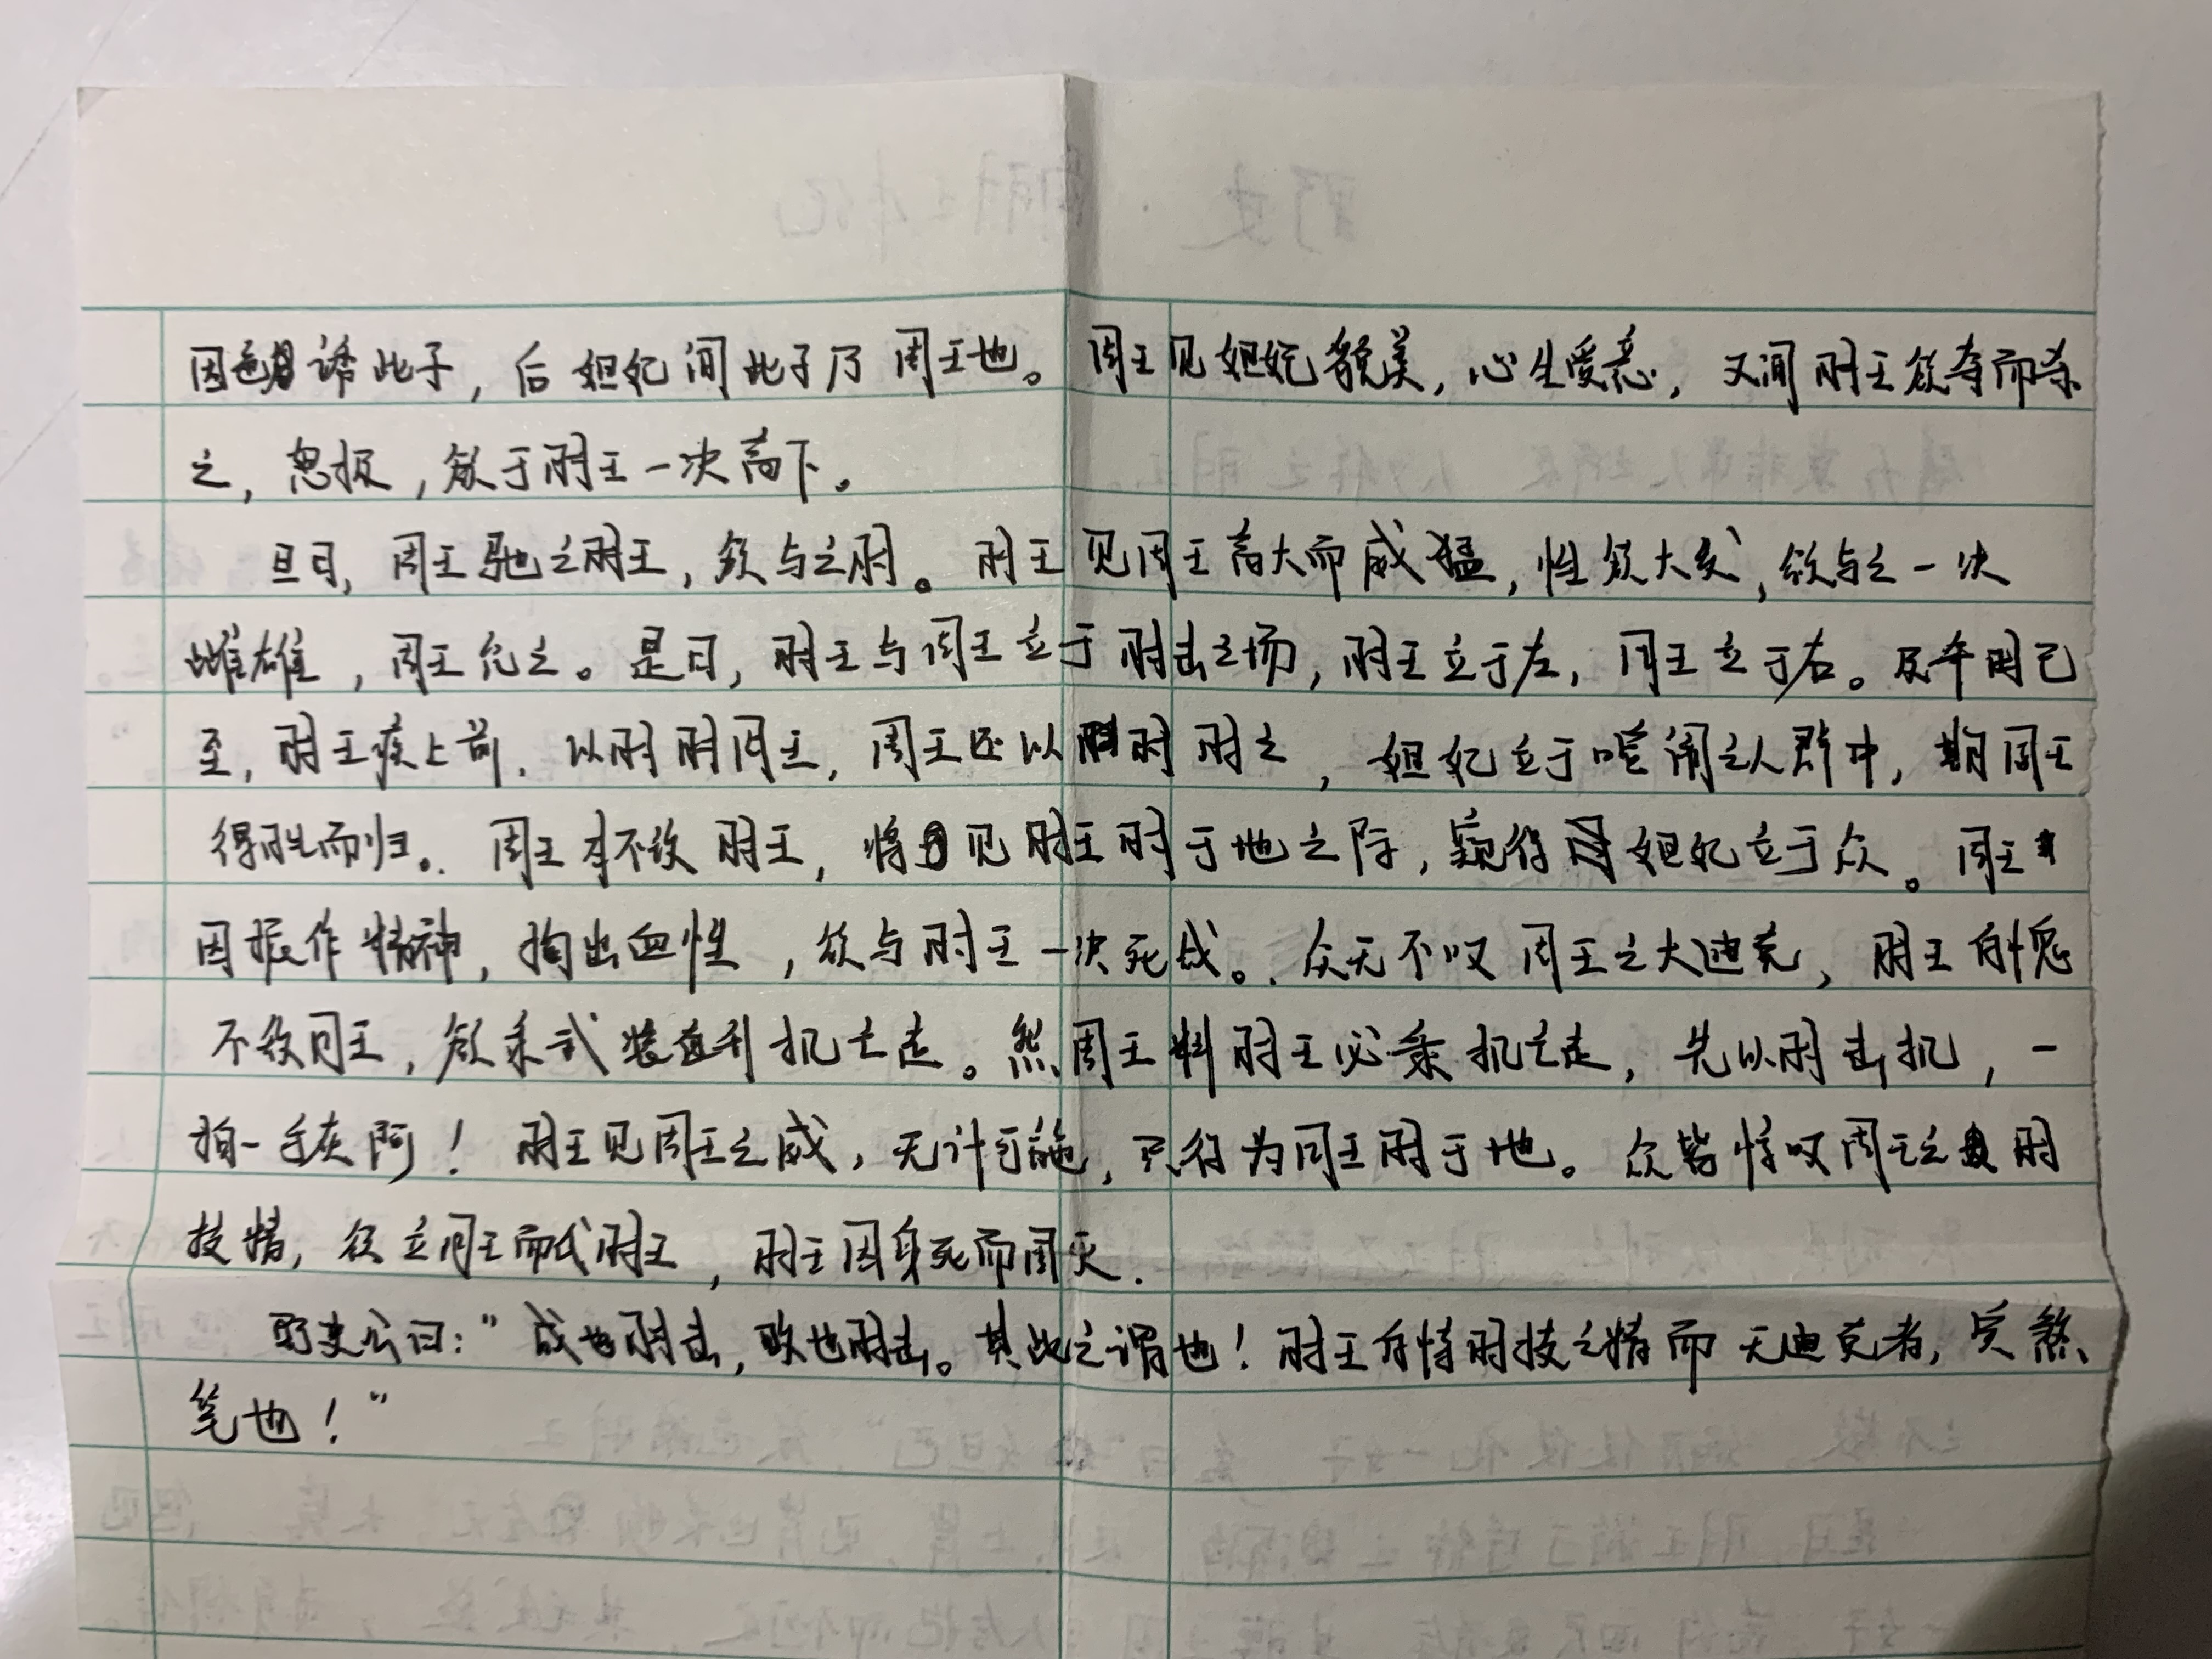 因色诱此子，后妲妃闻此子乃周王也。周王见妲妃貌美，心生爱意，又闻肘王欲夺而杀
之，怒极，欲于肘王一决高下。
旦日，周王驰之肘王，欲与之肘。肘王见周王高大而威猛，性欲大发，欲与之一决
雌雄，周王允之。是日，肘王与周王立于肘击之场，肘王立于左，周王立于右。及午时已
至，肘王疾上前，以肘肘周王，周王还以肘肘之，妲妃立于喧闹之人群中，期周王
得胜而归。周王本不敌肘王，将见肘王肘于地之际，窥得妲妃立于众。周王
因振作精神，掏出血性，欲与肘王一决死战。众无不叹周王之大迪克，肘王自愧
不敌周王，欲乘武装直升机亡走。然周王料肘王必乘机亡走，先以肘击机，一
拍一手灰阿！肘王见周王之威，无计可施，只得为周王肘于地。众皆惊叹周王之肘
技精，欲立周王而代肘王，肘王因身死而国灭.
野史公曰：“成也肘击，败也肘击。其此之谓也！肘王自恃肘技之精而无迪克者，实煞
笔也！”